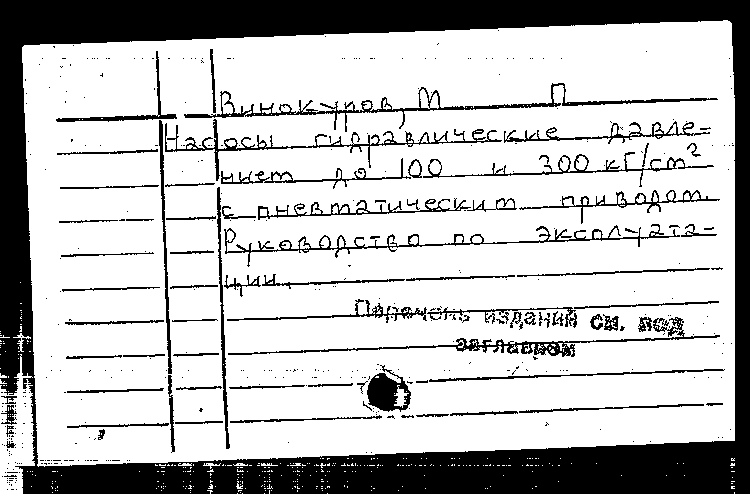 Винокуров, М П
Насосы гидравлические давле=
нием до 100 и 300 кГ/см²
с пневматическим приводом.
Руководство по эксплуата-
ции.
Перечень изданий см. под
заглавием